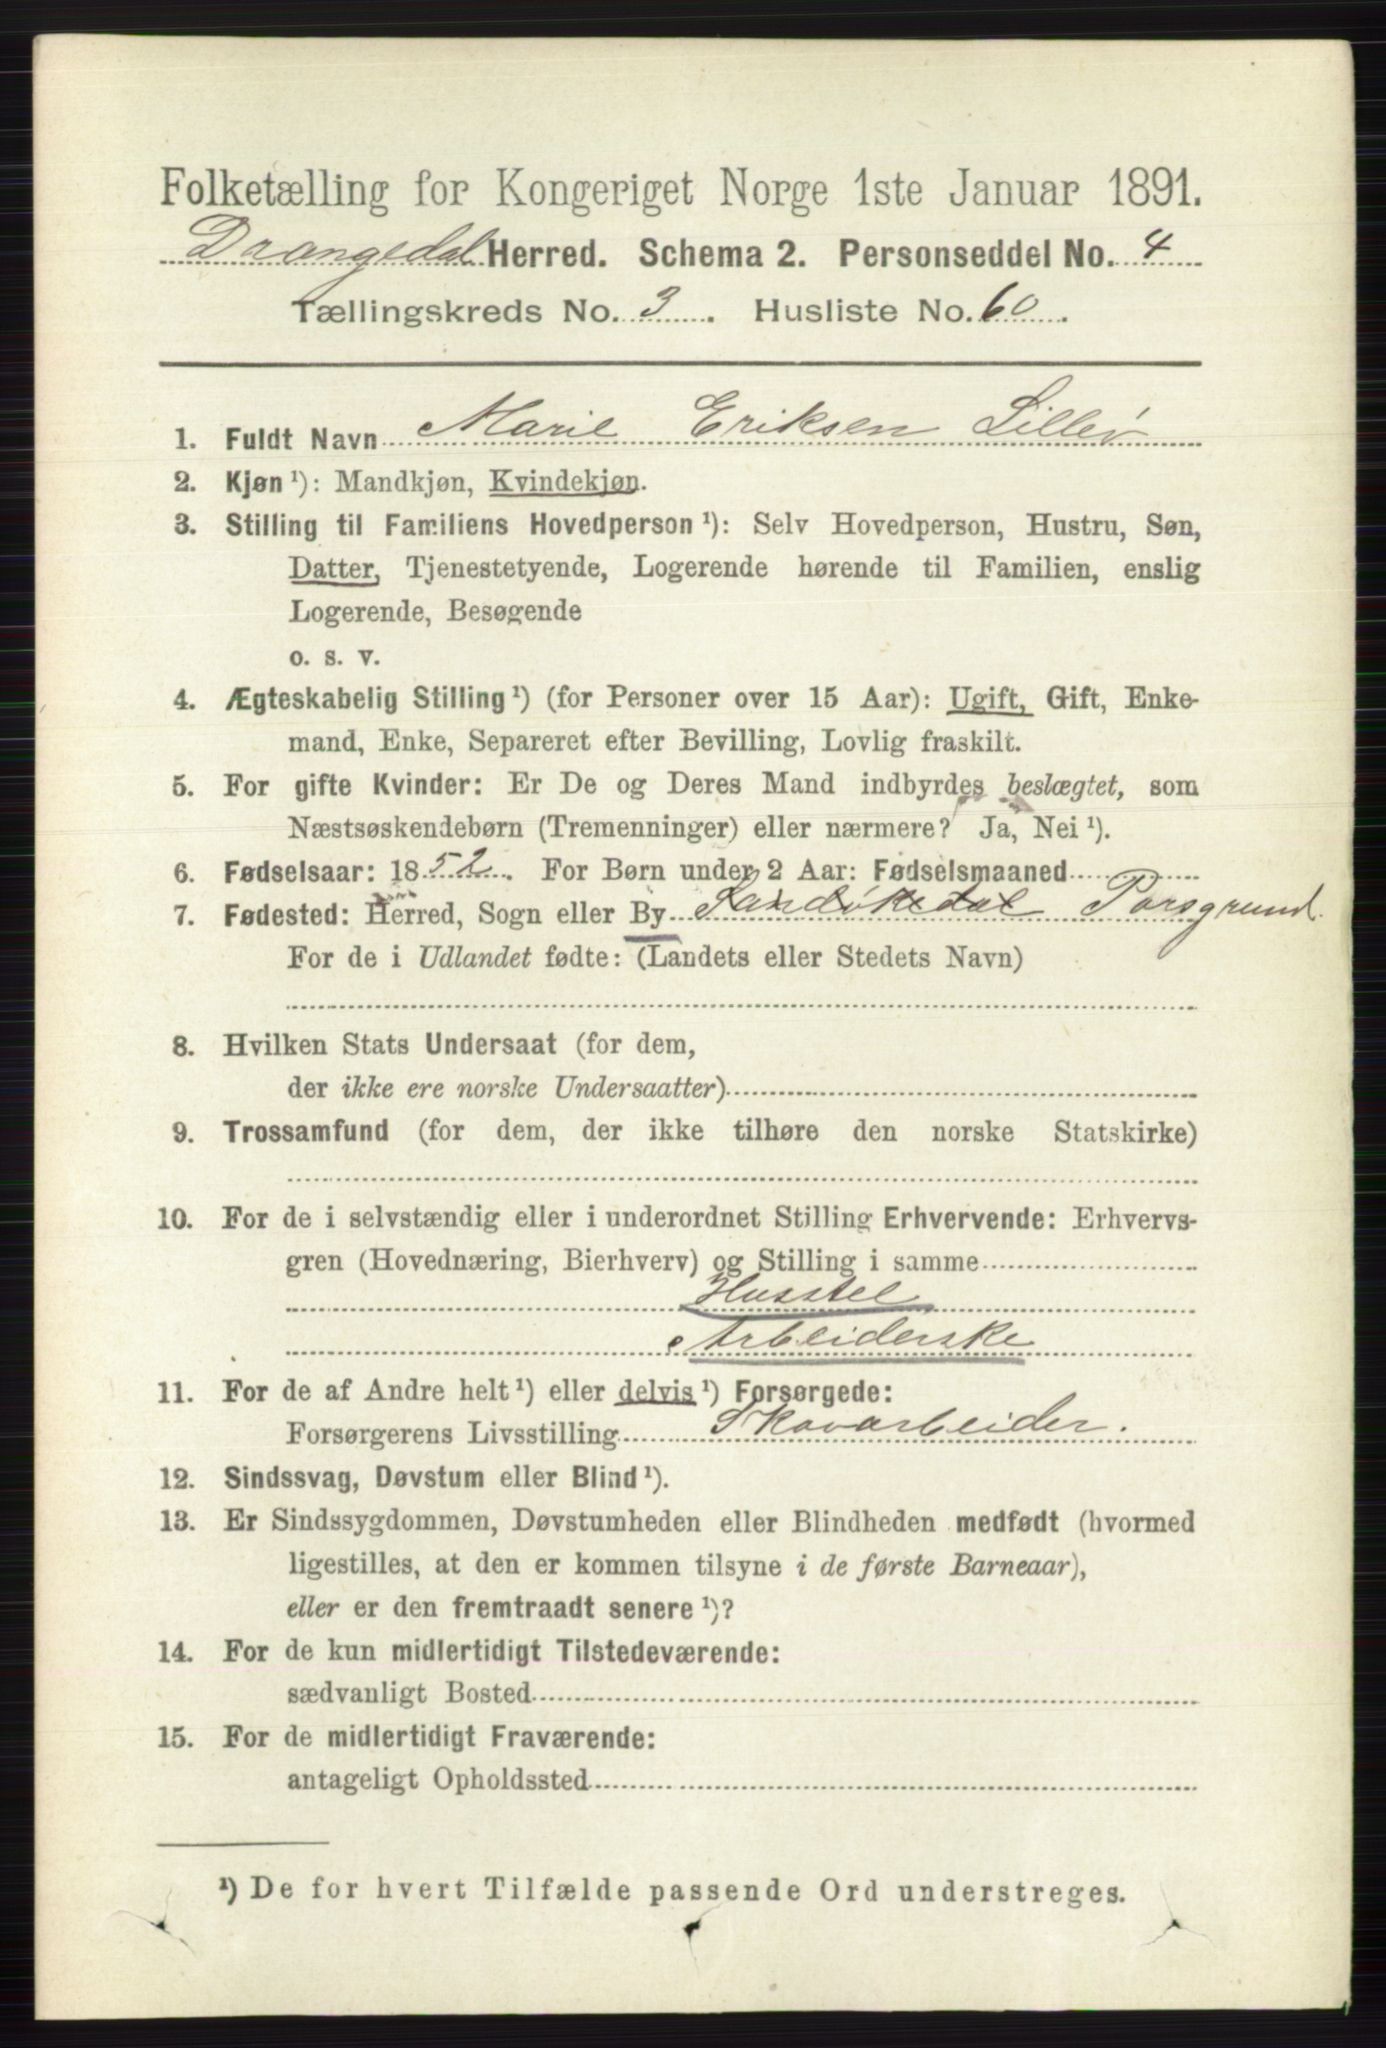 Folketælling for Kongeriget Norge 1ste Januar 1891.
Drangedal Herred. Schema 2. Personseddel No. 4
Tællingskreds No. 3. Husliste No. 60.
1. Fuldt Navn Marie Eriksen Lillev
2. Kjøn ¹): Mandkjøn, Kvindekjøn.
3. Stilling til Familiens Hovedperson ¹): Selv Hovedperson, Hustru, Søn,
Datter, Tjenestetyende, Logerende hørende til Familien, enslig
Logerende, Besøgende
o. s. v.
4. Ægteskabelig Stilling ¹) (for Personer over 15 Aar): Ugift, Gift, Enke-
mand, Enke, Separeret efter Bevilling, Lovlig fraskilt.
5. For gifte Kvinder: Er De og Deres Mand indbyrdes beslægtet, som
Næstsøskendebørn (Tremenninger) eller nærmere? Ja, Nei ¹).
6. Fødselsaar: 1852. For Børn under 2 Aar: Fødselsmaaned
7. Fødested: Herred, Sogn eller By Sandøkedal Porsgrund.
For de i Udlandet fødte: (Landets eller Stedets Navn)
8. Hvilken Stats Undersaat (for dem,
der ikke ere norske Undersaatter)
9. Trossamfund (for dem, der ikke tilhøre den norske Statskirke)
10. For de i selvstændig eller i underordnet Stilling Erhvervende: Erhvervs-
gren (Hovednæring, Bierhverv) og Stilling i samme
Husstel
Arbeiderske
11. For de af Andre helt ¹) eller delvis ¹) Forsørgede:
Forsørgerens Livsstilling Skovarbeider.
12. Sindssvag, Døvstum eller Blind ¹).
13. Er Sindssygdommen, Døvstumheden eller Blindheden medfødt (hvormed
ligestilles, at den er kommen tilsyne i de første Barneaar),
eller er den fremtraadt senere ¹)?
14. For de kun midlertidigt Tilstedeværende:
sædvanligt Bosted
15. For de midlertidigt Fraværende:
antageligt Opholdssted
¹) De for hvert Tilfælde passende Ord understreges.